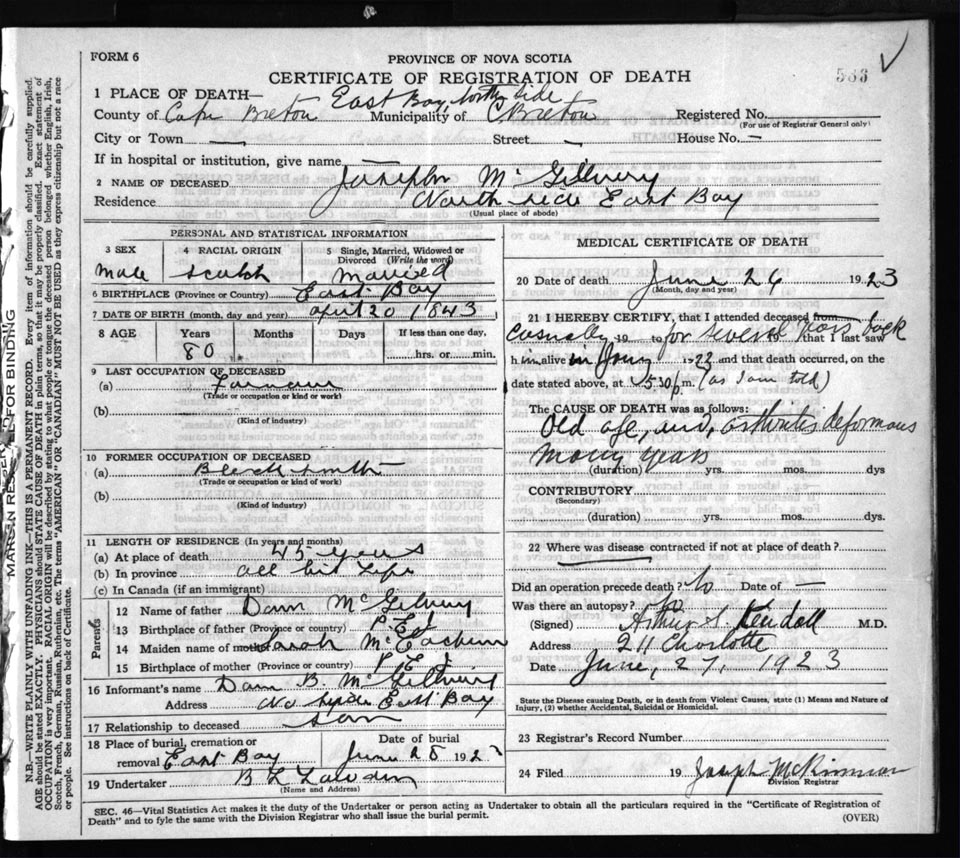 FORM 6
PROVINCE OF NOVA SCOTIA
583
CERTIFICATE OF REGISTRATION OF DEATH
1 PLACE OF DEATH— East Bay, North Side
County of Cape Breton Municipality of C. Breton Registered No.
(For use of Registrar General only)
City or Town — Street — House No. —
If in hospital or institution, give name —
2 NAME OF DECEASED Joseph McGillvery
Residence North side East Bay
(Usual place of abode)
PERSONAL AND STATISTICAL INFORMATION
3 SEX 4 RACIAL ORIGIN 5 Single, Married, Widowed or Divorced (Write the word)
Male Scotch Married
6 BIRTHPLACE (Province or Country) East Bay
7 DATE OF BIRTH (month, day and year) April 20 1843
8 AGE Years Months Days If less than one day,
80 hrs. or min.
9 LAST OCCUPATION OF DECEASED
(a) Farmer
(Trade or occupation or kind or work)
(b)
(Kind of industry)
10 FORMER OCCUPATION OF DECEASED
(a) Blacksmith
(Trade or occupation or kind of work)
(b)
(Kind of industry)
11 LENGTH OF RESIDENCE (In years and months)
(a) At place of death 45 years
(b) In province all his Life
(c) In Canada (if an immigrant)
Parents
12 Name of father Dan McGilvery
13 Birthplace of father (Province or country) P.E.I
14 Maiden name of mother Sarah McEachern
15 Birthplace of mother (Province or country) P.E.I
16 Informant's name Dan B. McGillvery
Address No Side East Bay
17 Relationship to deceased son
18 Place of burial, cremation or removal East Bay Date of burial June 28 1923
19 Undertaker B L
(Name and Address)
MEDICAL CERTIFICATE OF DEATH
20 Date of death June 26 1923
(Month, day and year)
21 I HEREBY CERTIFY, that I attended deceased from
casually 19 to for several years back 19 that I last saw
h im alive in 1923 and that death occurred, on the
date stated above, at 5.30 p m. (as I am told)
The CAUSE OF DEATH was as follows:
Old age, and arthritis deformans
Many years
(duration) yrs. mos. dys
CONTRIBUTORY
(Secondary)
(duration) yrs. mos. dys.
22 Where was disease contracted if not at place of death?
Did an operation precede death? No Date of —
Was there an autopsy? No
(Signed) Arthur S. Kendall M.D.
Address 211 Charlotte
Date June, 27, 1923
State the Disease causing Death, or in death from Violent Causes, state (1) Means and Nature of
Injury, (2) whether Accidental, Suicidal or Homicidal.
23 Registrar's Record Number
24 Filed 19 Joseph McKinnon
Division Registrar
SEC. 46—Vital Statistics Act makes it the duty of the Undertaker or person acting as Undertaker to obtain all the particulars required in the "Certificate of Registration of
Death" and to fyle the same with the Division Registrar who shall issue the burial permit.
(OVER)
MARGIN RESERVED FOR BINDING
N.B.—WRITE PLAINLY WITH UNFADING INK—THIS IS A PERMANENT RECORD. Every item of information should be carefully supplied.
AGE should be stated EXACTLY. PHYSICIANS should STATE CAUSE OF DEATH in plain terms, so that it may be properly classified. Exact statement of
OCCUPATION is very important. RACIAL ORIGIN will be described by stating to what people or tongue the deceased person belonged whether English, Irish,
Scotch, French, German, Russian, Ruthenian, etc. The terms "AMERICAN" or "CANADIAN" MUST NOT BE USED as they express citizenship but not a race
or people. See instructions on back of Certificate.